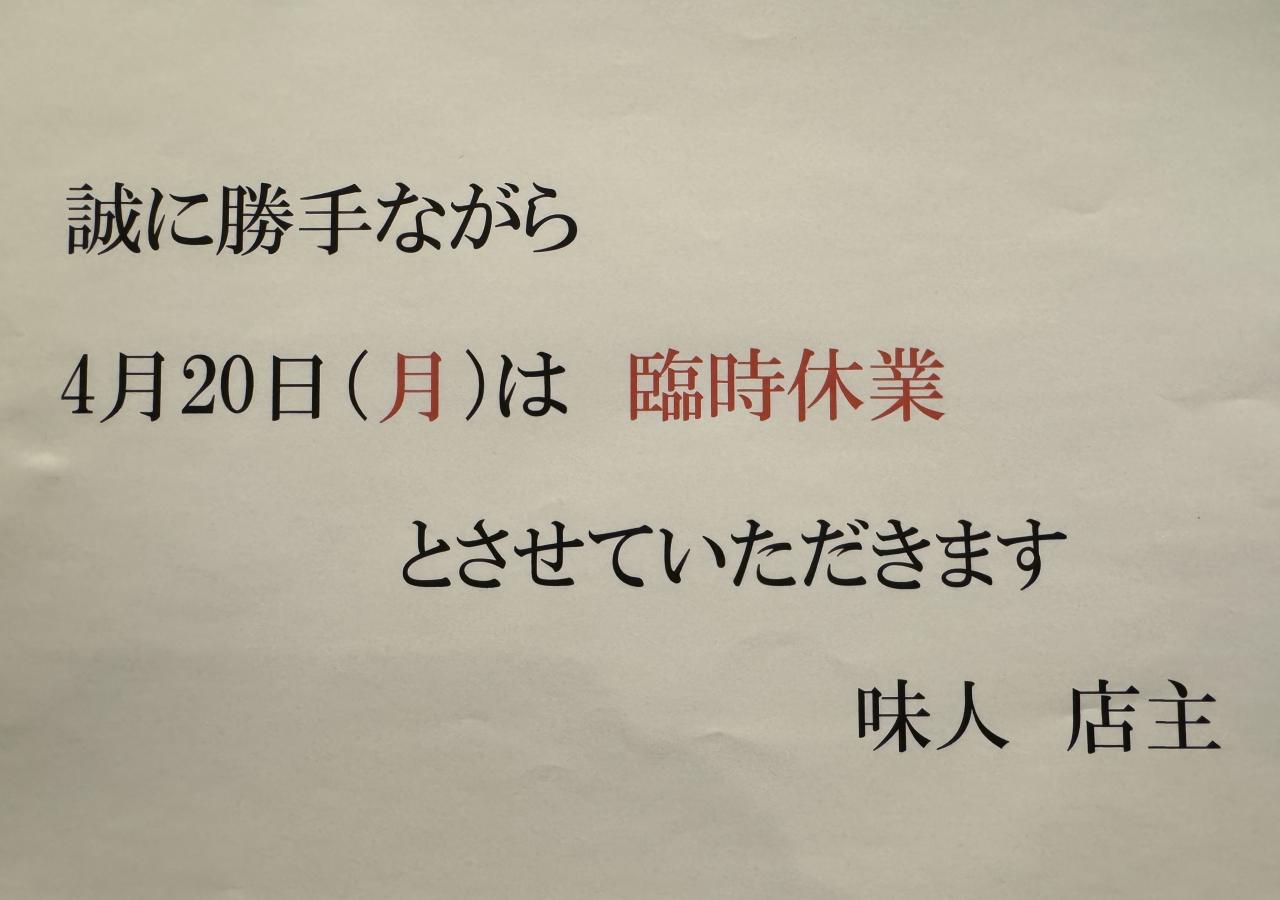 誠に勝手ながら
4月20日(月)は　臨時休業
とさせていただきます
味人　店主